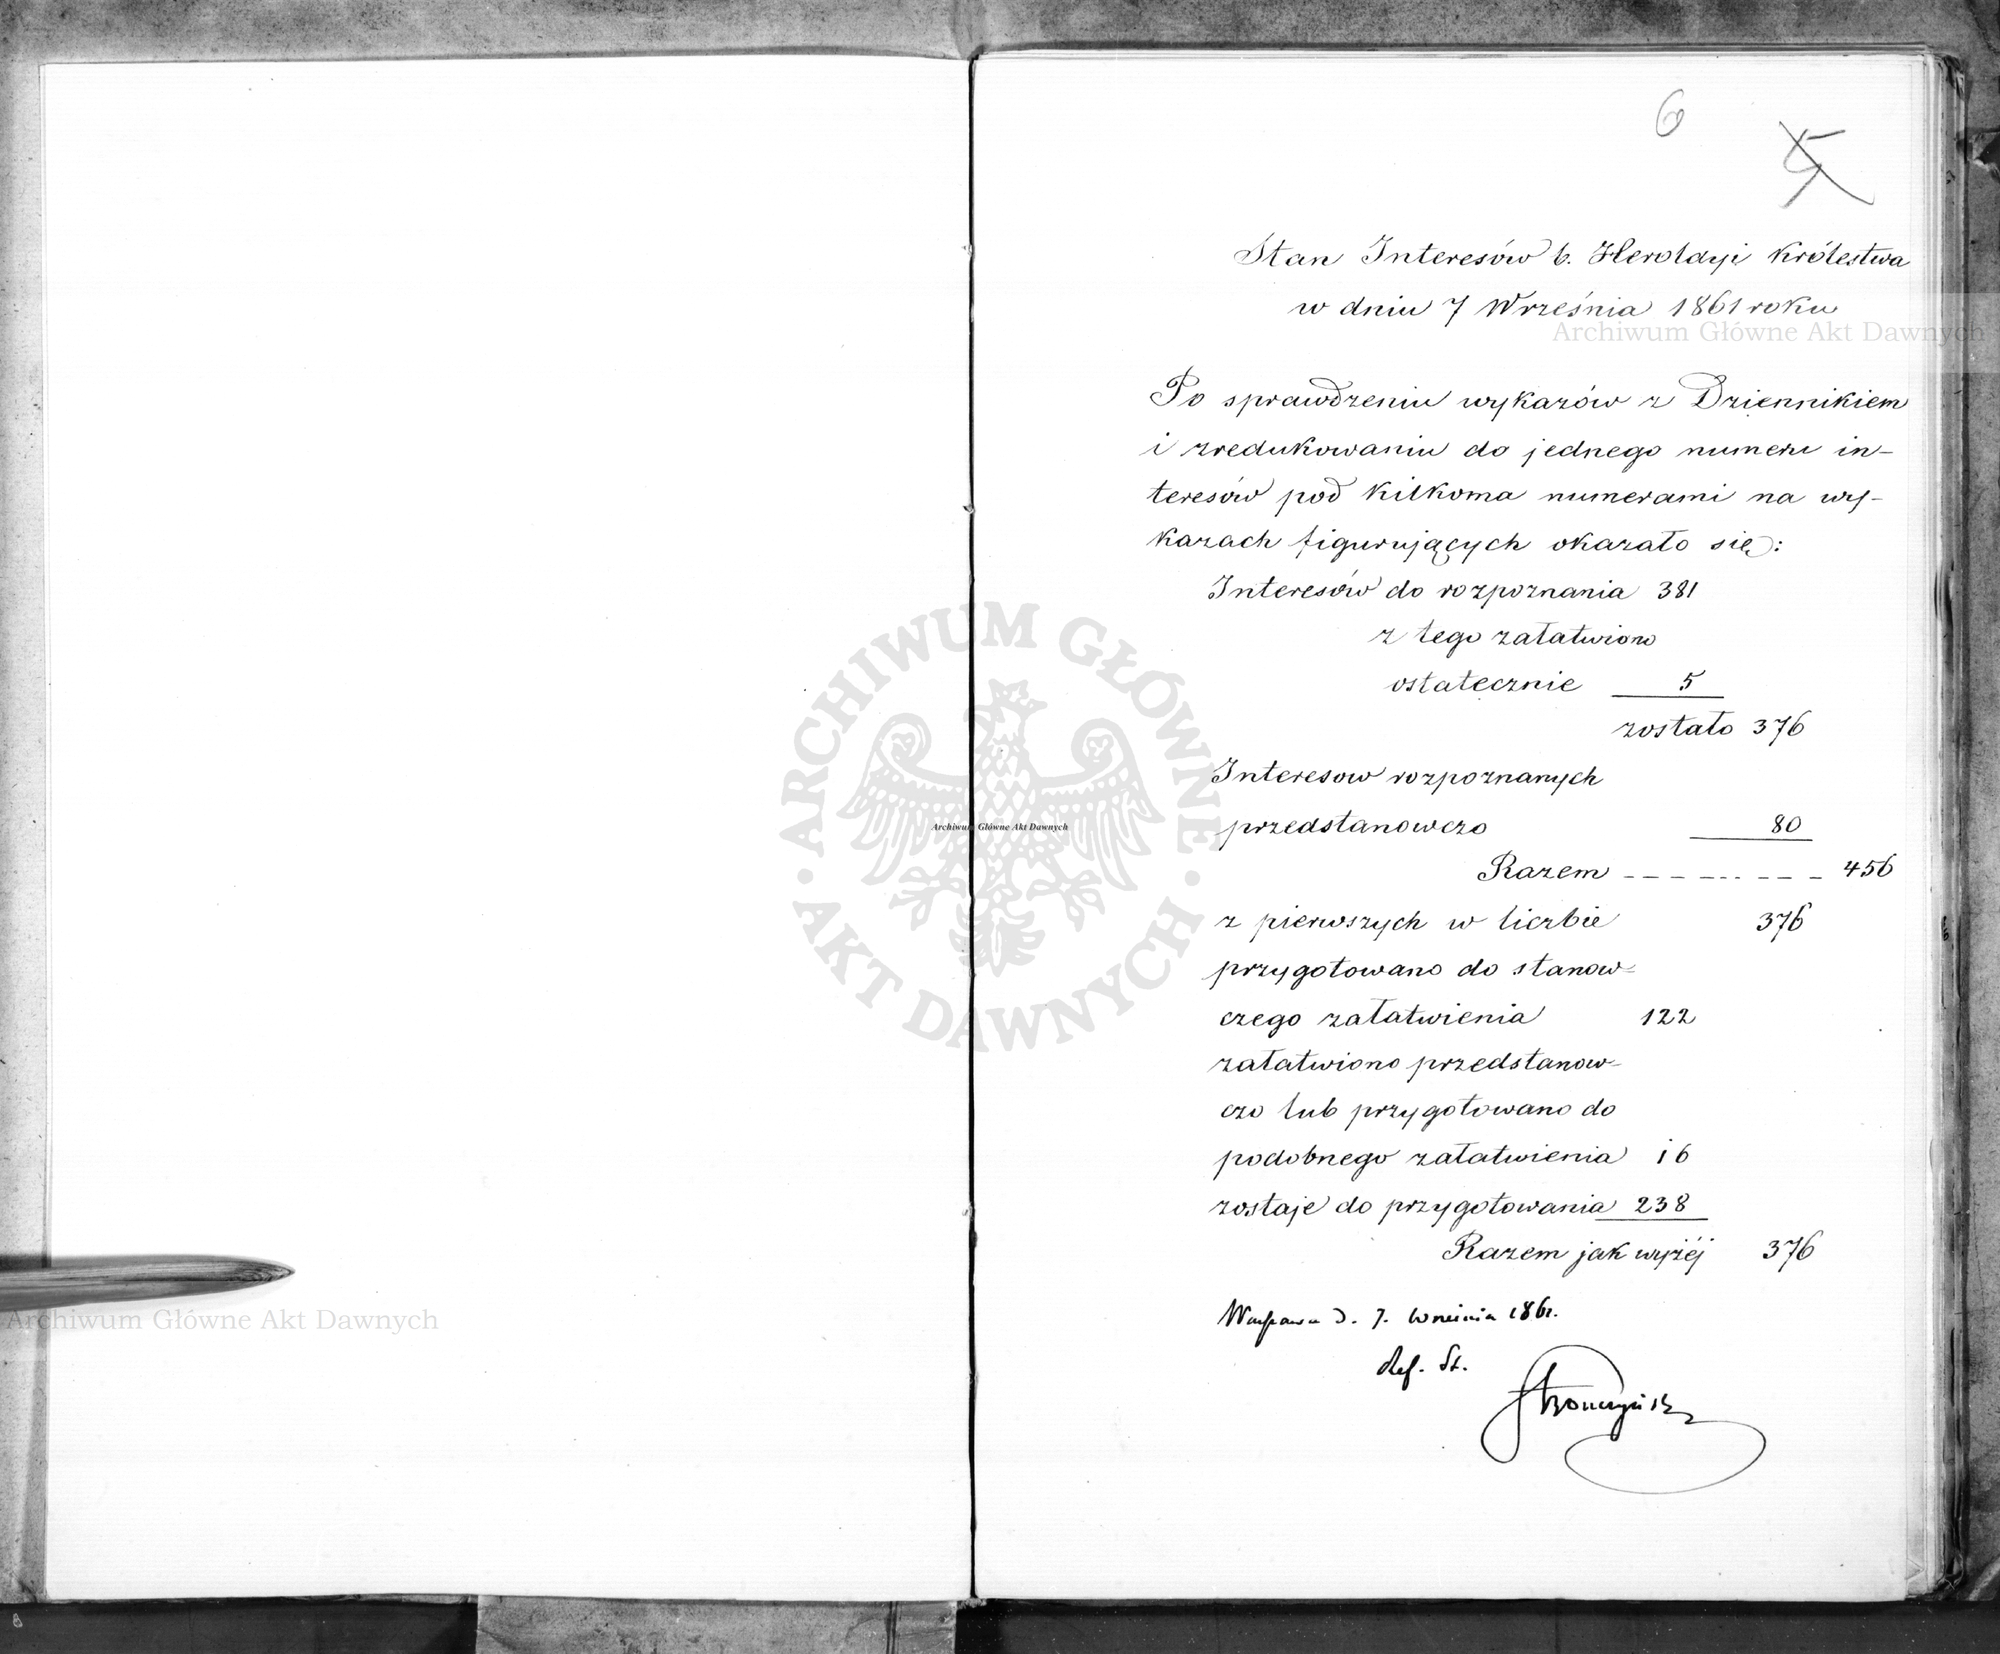 6
5
Stan Interesów b. Heroldyi Królestwa
w dniu 7 Września 1861 roku
Archiwum Główne Akt Dawnych
Po sprawdzeniu wykazów z Dziennikiem
i zredukowaniu do jednego numeru in-
teresów pod kilkoma numerami na wy-
kazach figurujących okazało się:
Interesów do rozpoznania 381
z tego załatwiono
ostatecznie 5
zostało 376
Interesow rozpoznanych
przedstanowczo 80
Razem 456
z pierwszych w liczbie 376
przygotowano do stanow=
czego załatwienia 122
załatwiono przedstanow-
czo lub przygotowano do
podobnego załatwienia 16
zostaje do przygotowania 238
Razem jak wyżéj 376
Warszawa d. 7. Września 1861.
Ref. St.
Stronczyński
ARCHIWUM GŁÓWNE AKT DAWNYCH
Archiwum Główne Akt Dawnych
Archiwum Główne Akt Dawnych